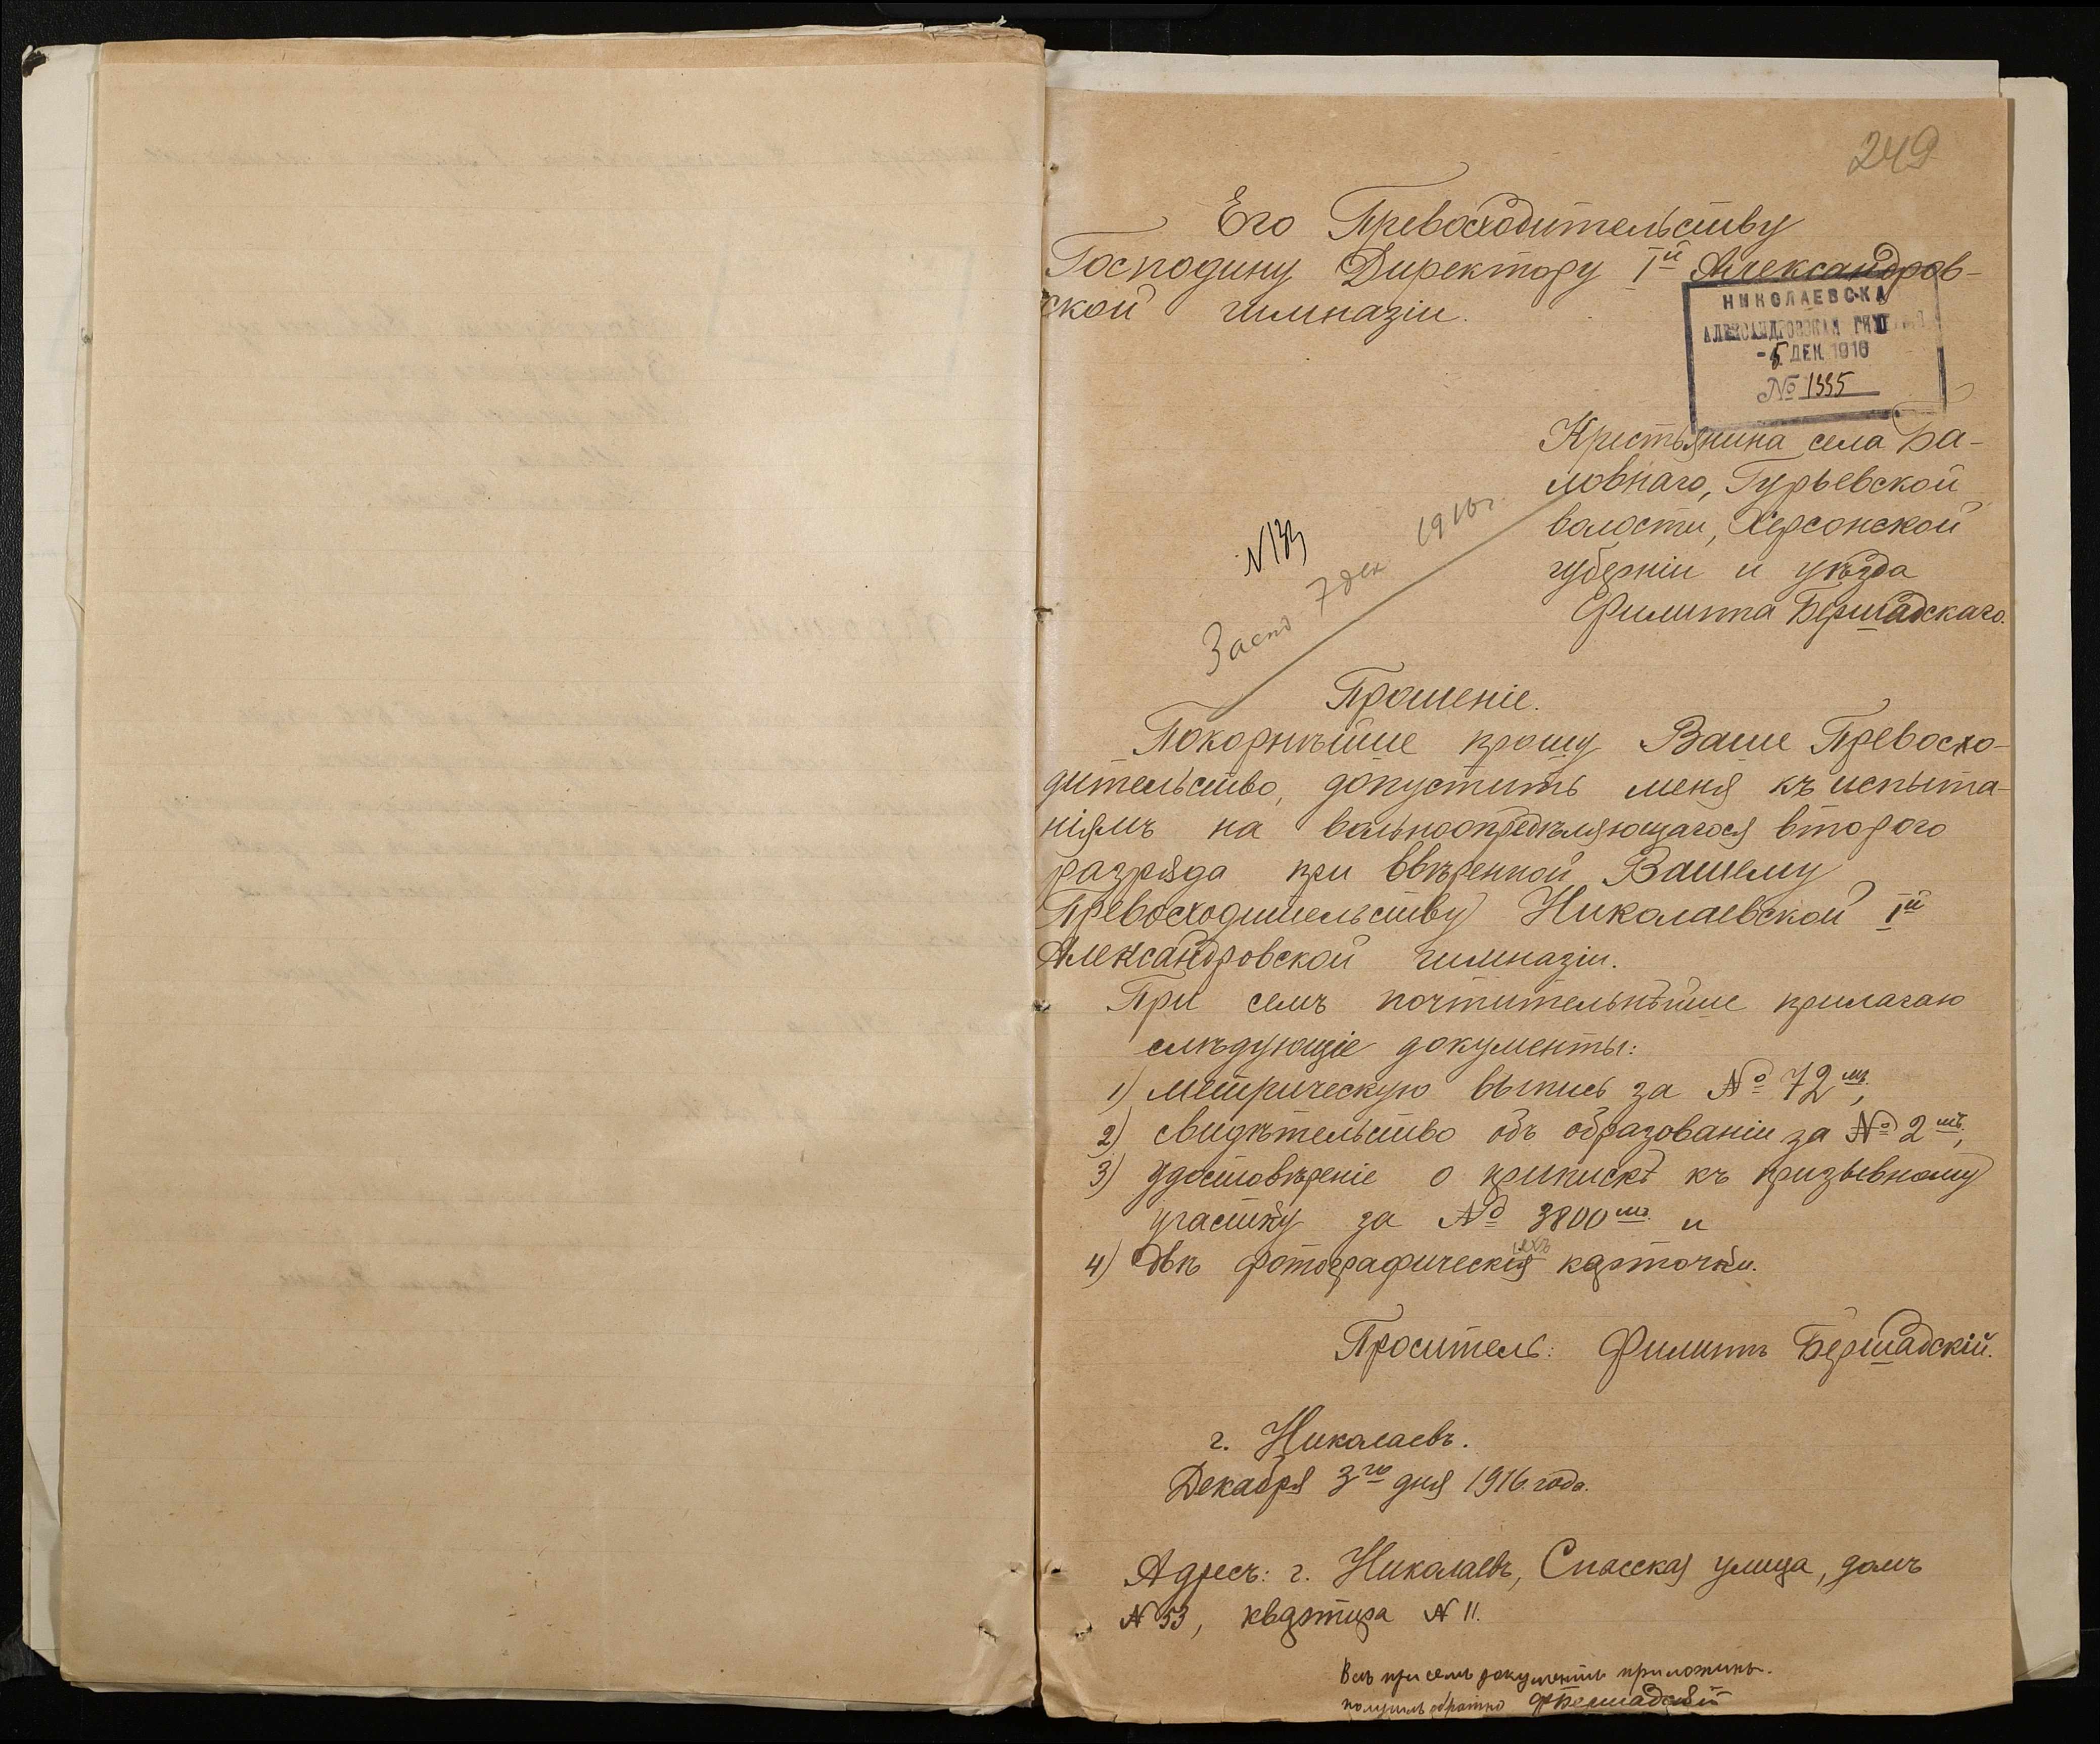 249
Его Превосходительству
Господину Директору Iй Александров-
ской гимназіи.
НИКОЛАЕВСКА
АЛЕКСАНДРОВСКАЯ ГИМ
- 5 ДЕК. 1916
№ 1335
Крестьянина села Ба-
ловнаго, Гурьевской
волости, Херсонской
губерніи и уѣзда
Филиппа Бершадскаго.
7 дек 1916 г.
Прошеніе.
Покорнѣйше прошу Ваше Превосхо-
дительство, допустить меня къ испыта-
ніямъ на вольноопредѣляющагося второго
разряда при ввѣренной Вашему
Превосходительству Николаевской Iй
Александровской гимназіи.
При семъ почтительнѣйше прилагаю
слѣдующіе документы:
1) метрическую выпись за № 72мъ,
2) свидѣтельство объ образованіи за № 2мъ,
3) удостовѣреніе о припискѣ къ призывному
участку за № 3800мъ и
4) Двѣ фотографическія карточки.
Проситель: Филиппъ Бершадскій.
г. Николаевъ.
Декабря 3го дня 1916 года.
Адресъ: г. Николаевъ, Спасская улица, домъ
№ 53, квартира № 11.
Всѣ при семъ документы приложены.
получилъ обратно Ф Бершадскій